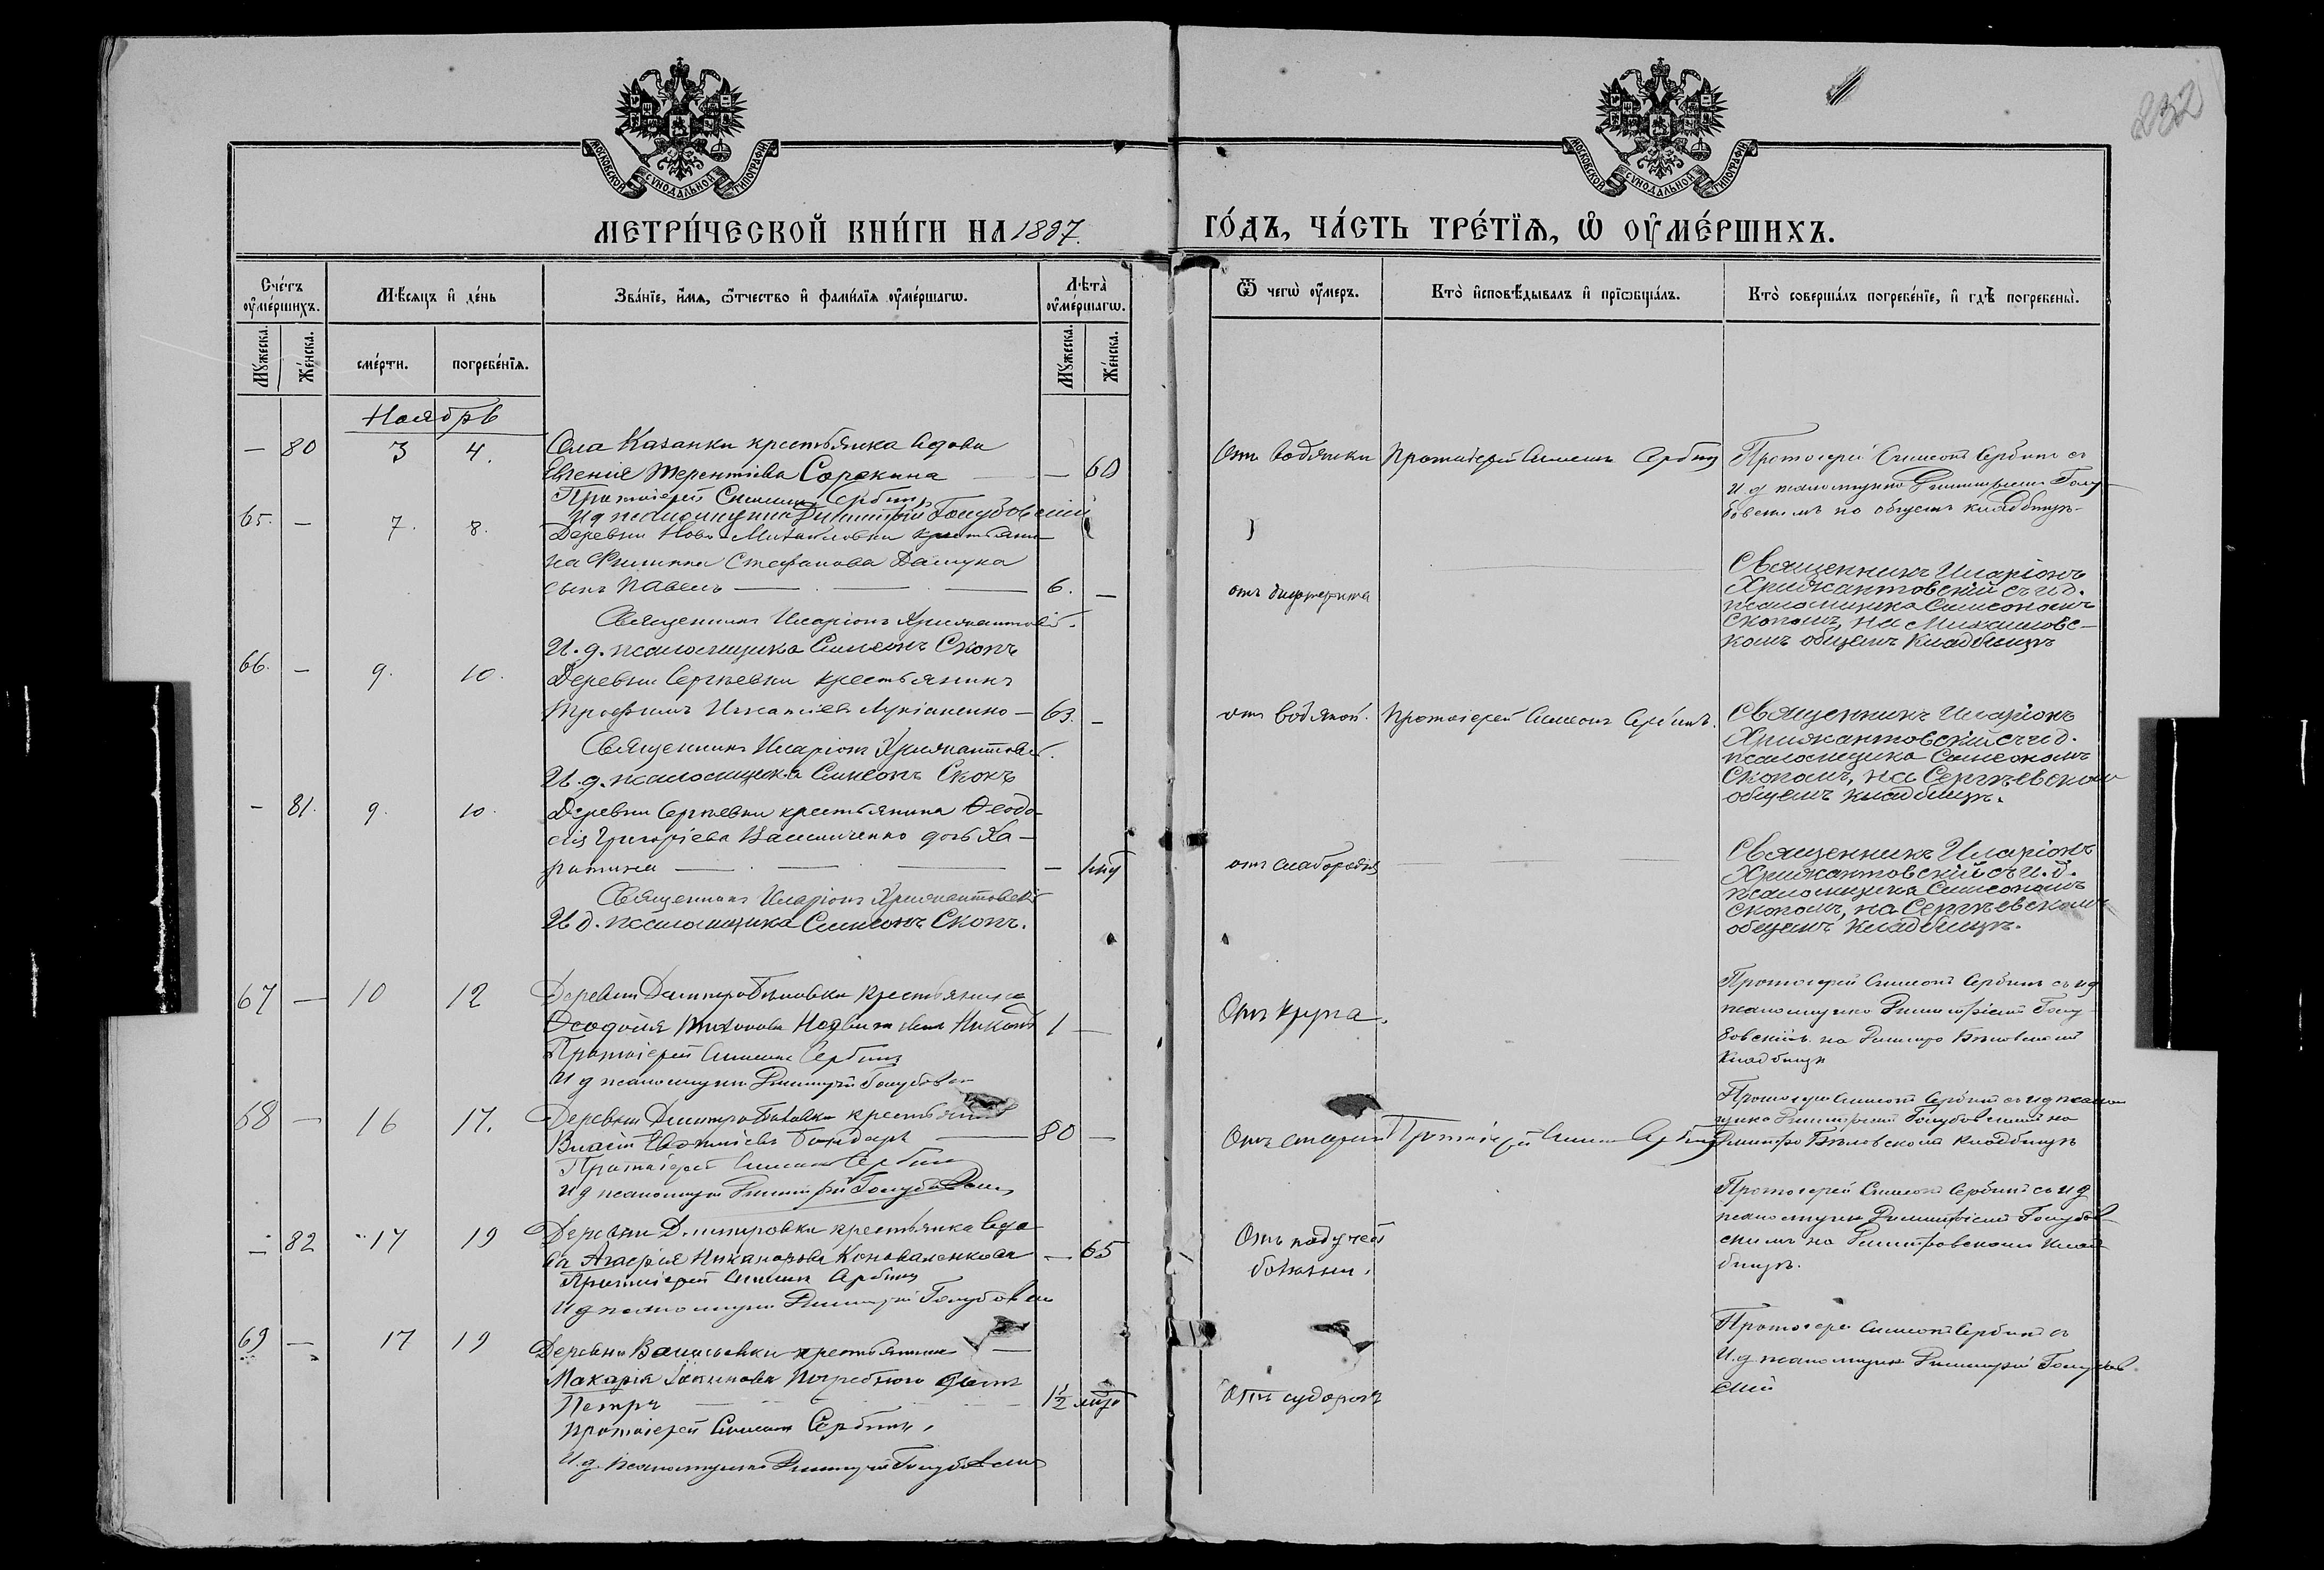 МОСКОВСКОЙ СУНОДАЛЬНОЙ ТИПОГРАФІИ
МОСКОВСКОЙ СУНОДАЛЬНОЙ ТИПОГРАФІИ
232
МЕТРИ́ЧЕСКОЙ КНИ́ГИ НА 1897.
ГО́ДЪ, ЧА́СТЬ ТРЕ́ТІѦ, Ѡ ОУ҆МЕ́РШИХЪ.
Сче́тъ оу҆ме́ршихъ.
Мѣ́сяцъ и҆ де́нь
Зва́нїе, и҆́мѧ, ѻ҆́тчество и҆ фами́лїѧ оу҆ме́ршагѡ.
Лѣ́та оу҆ме́ршагѡ.
Ѿ чегѡ̀ оу҆́меръ.
Кто̀ и҆сповѣ́дывалъ и҆ прїѡбща́лъ.
Кто̀ соверша́лъ погребе́нїе, и҆ гдѣ̀ погребены̀.
Мꙋ́жеска.
Же́нска.
сме́рти.
погребе́нїѧ.
Мꙋ́жеска.
Же́нска.
Ноябрь
— 80 3 4. Села Казанки крестьянка вдова
Евгенія Терентіева Сорокина — 60
Протоіерей Симеонъ Сербинъ
И д псаломщика Димитрій Голубовскій
Отъ водянки Протоіерей Симеонъ Сербинъ
Протоіерей Симеонъ Сербинъ съ
и д псаломщика Димитріемъ Голу-
бовскимъ на общемъ кладбищѣ
65. — 7. 8. Деревни Ново-Михайловки крестьяни-
на Филиппа Стефанова
сынъ Павелъ — 6. —
Священникъ Иларіонъ Хрисантовскій.
И. д. псаломщика Симеонъ Скопъ
отъ дифтерита
Священникъ Иларіонъ
Хрисантовскій съ и. д.
псаломщика Симеономъ
Скопомъ, на Михайловс-
комъ общемъ кладбищѣ
66. — 9. 10. Деревни Сергѣевки крестьянинъ
Трофимъ Игнатіевъ Лукіаненко — 63. —
Священникъ Иларіонъ Хрисантовскій.
И. д. псаломщика Симеонъ Скопъ
отъ водяной. Протоіерей Симеонъ Сербинъ.
Священникъ Иларіонъ
Хрисантовскій съ и. д.
псаломщика Симеономъ
Скопомъ, на Сергѣевскомъ
общемъ кладбищѣ.
— 81. 9. 10. Деревни Сергѣевки крестьянина Ѳеодо-
сія Григоріева дочь Ха-
ритина —
Священникъ Иларіонъ Хрисантовскій
И д. псаломщика Симеонъ Скопъ.
отъ слаборожд.
Священникъ Иларіонъ
Хрисантовскій съ и. д.
псаломщика Симеономъ
Скопомъ, на Сергѣевскомъ
общемъ кладбищѣ.
67 — 10 12 Деревни Димитро-Бѣловки крестьянина
Ѳеодосія Тихонова сынъ 1 —
Протоіерей Симеонъ Сербинъ
И д псаломщика Димитрій Голубовскій
Отъ крупа.
Протоіерей Симеонъ Сербинъ съ и д
псаломщика Димитріемъ Голу-
бовскимъ на Димитро Бѣловскомъ
кладбищѣ
68 — 16 17. Деревни Димитро-Бѣловки крестьянинъ
Власій Евѳиміевъ Бондарь — 80 —
Протоіерей Симеонъ Сербинъ
и д псаломщика Димитрій Голубовскій
Отъ старости Протоіерей Симеонъ Сербинъ
Протоіерей Симеонъ Сербинъ съ и д псалом
щика Димитріемъ Голубовскимъ на
Димитро Бѣловскомъ кладбищѣ
— 82 17 19 Деревни Димитровки крестьянка вдо
ва Агафія Никанорова Коноваленкова — 65
Протоіерей Симеонъ Сербинъ
И д псаломщика Димитрій Голубовскій
Отъ падучей
болѣзни.
Протоіерей Симеонъ Сербинъ съ и д
псаломщика Димитріемъ Голубов
скимъ на Димитровскомъ клад
бищѣ.
69 — 17 19 Деревни Васильевки крестьянина —
Макарія Іакимова сынъ
Петръ — 1 1/2
Протоіерей Симеонъ Сербинъ,
И. д. псаломщика Димитрій Голубовскій
Отъ судорогъ
Протоіерей Симеонъ Сербинъ съ
И. д псаломщика Димитрій Голубов
скій